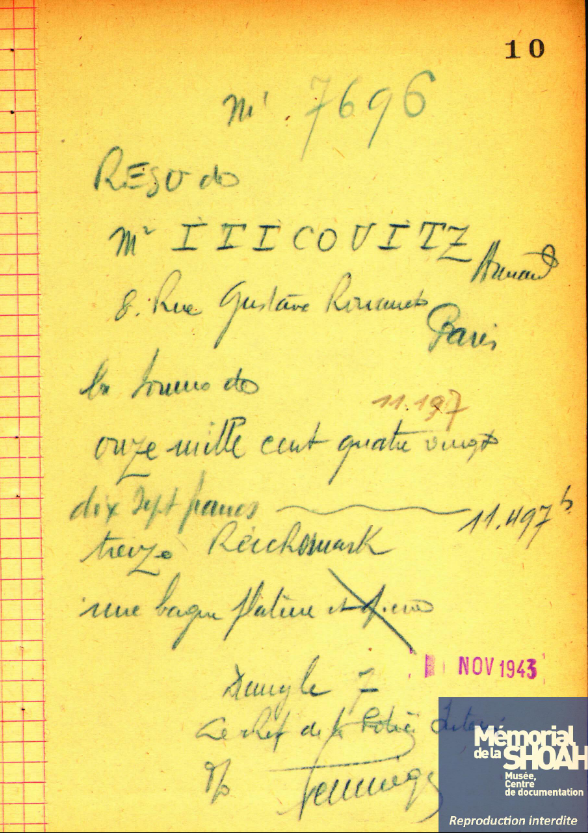 10
7696
REÇU de
Mr ITICOVITZ Armand
8. Rue Gustave Rouanet
Paris
la somme de
11.197
onze mille cent quatre vingt
dix sept francs 11.497
treize Reichsmark
une bague platine et
NOV 1943
Le chef de la Police
Mémorial
de la SHOAH
Musée,
Centre
de documentation
Reproduction interdite